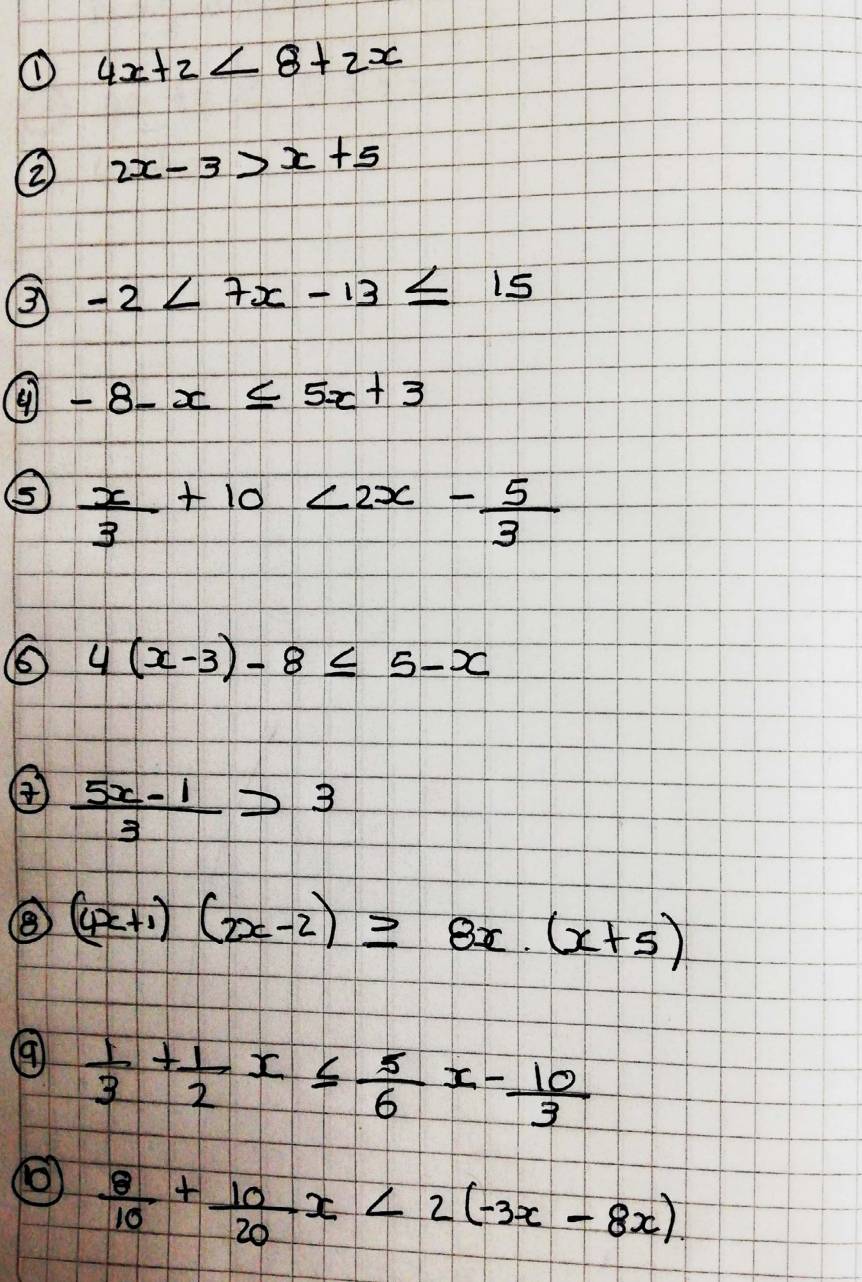 ① 4x+2 < 8+2x
② 2x-3 > x+5
③ -2 < 7x-13 ≤ 15
④ -8-x ≤ 5x+3
⑤ x/3 + 10 < 2x - 5/3
⑥ 4(x-3)-8 ≤ 5-x
⑦ (5x-1)/3 > 3
⑧ (4x+1) (2x-2) ≥ 8x . (x+5)
⑨ 1/3 + 1/2 x ≤ 5/6 x - 10/3
⑩ 8/10 + 10/20 x < 2(-3x - 8x).